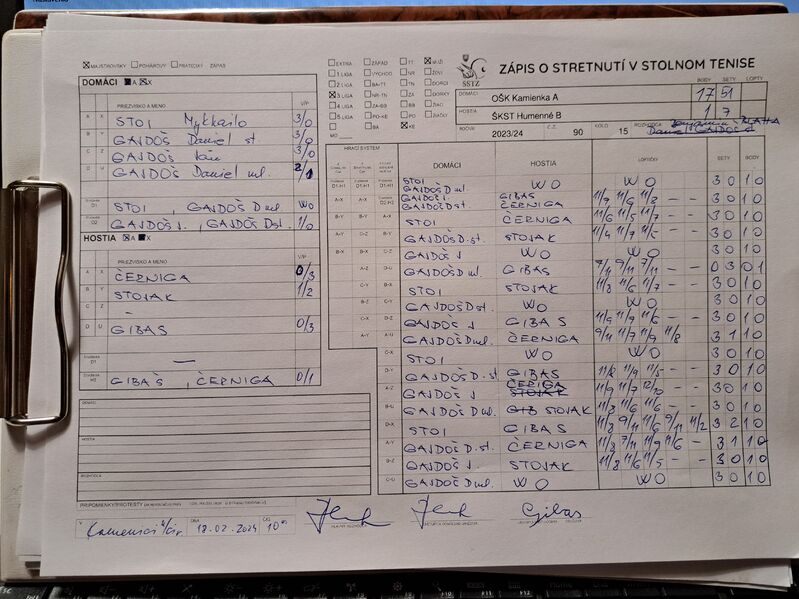 MAJSTROVSKÝ POHÁROVÝ PRIATEĽSKÝ ZÁPAS
DOMÁCI A X
PRIEZVISKO A MENO V/P
A X STOI Mykhailo 3/0
B Y GAJDOŠ Daniel st. 3/0
C Z GAJDOŠ Ján 3/0
D U GAJDOŠ Daniel ml. 2/1
D1 STOI , GAJDOŠ D ml WO
D2 GAJDOŠ J. , GAJDOŠ D st. 1/0
HOSTIA A X
PRIEZVISKO A MENO V/P
A X ČERNIGA 0/3
B Y STOJAK 1/2
C Z –
D U GIBAS 0/3
D1 —
GIBAŠ , ČERNIGA 0/1
DOMÁCI
HOSTIA
ROZHODCA
PRIPOMIENKY/PROTESTY
V Kamenici n/Cir. DŇA 18.02.2024 ČAS 10°°
Gibas
EXTRA ZÁPAD TT MUŽI
1.LIGA VÝCHOD NR ŽENY
2.LIGA BA-TT TN DORCI
3.LIGA NR-TN ZA DORKY
4.LIGA ZA-BB BB ŽIACI
5.LIGA PO-KE PO ŽIAČKY
BA KE
MO
SSTZ
ZÁPIS O STRETNUTÍ V STOLNOM TENISE
BODY SETY LOPTY
DOMÁCI OŠK Kamienka A 17 51
HOSTIA ŠKST Humenné B 1 7
ROČNÍK 2023/24 Č.Z. 90 KOLO 15 ROZHODCA Benjamin BLAHA
HRACÍ SYSTÉM DOMÁCI HOSTIA LOPTIČKY SETY BODY
STOI GAJDOŠ D ml. WO WO 3 0 1 0
GAJDOŠ J. GAJDOŠ D st. GIBAS ČERNIGA 11/9 11/6 11/2 – – 3 0 1 0
STOI ČERNIGA 11/6 11/5 11/7 – – 3 0 1 0
GAJDOŠ D. st. STOJAK 11/4 11/7 11/5 – – 3 0 1 0
GAJDOŠ J WO WO 3 0 1 0
GAJDOŠ D ml. GIBAS 7/11 9/11 7/11 – – 0 3 0 1
STOI STOJAK 11/3 11/6 11/7 – – 3 0 1 0
GAJDOŠ D st. WO WO 3 0 1 0
GAJDOŠ J. GIBAS 11/9 11/9 11/6 – – 3 0 1 0
GAJDOŠ D ml. ČERNIGA 9/11 11/7 11/9 11/8 3 1 1 0
STOI WO WO 3 0 1 0
GAJDOŠ D. st GIBAS 11/2 11/9 11/5 – – 3 0 1 0
GAJDOŠ J. ČERIGA 11/9 11/7 12/10 – – 3 0 1 0
GAJDOŠ D ml. STOJAK 11/3 11/6 11/6 – – 3 0 1 0
STOI GIBAS 11/8 9/11 11/6 9/11 11/2 3 2 1 0
GAJDOŠ D. st. ČERNIGA 11/3 7/11 11/9 11/6 – 3 1 1 0
GAJDOŠ J. STOJAK 11/8 11/6 11/5 – – 3 0 1 0
GAJDOŠ D ml. WO WO 3 0 1 0